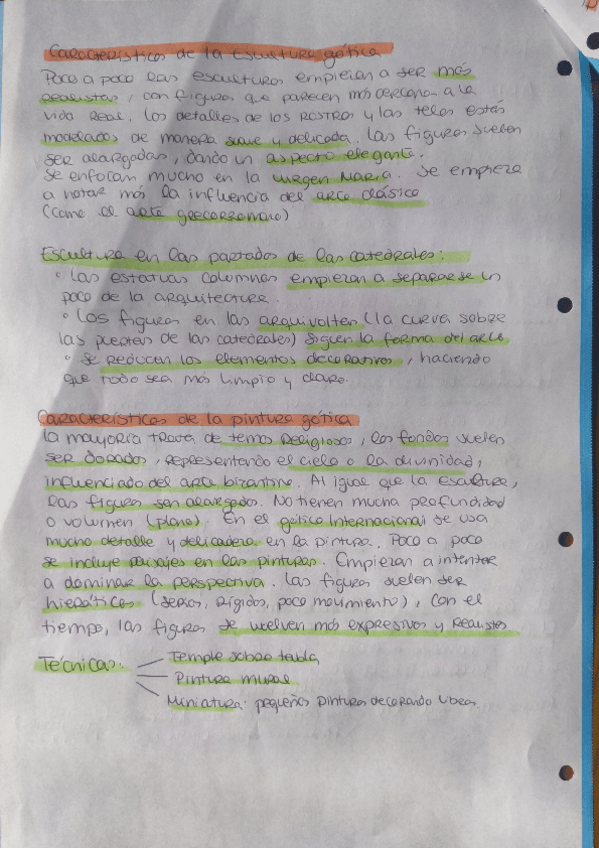 Características de la Escultura gótica
Poco a poco las esculturas empiezan a ser más
realistas, con figuras que parecen más cercanas a la
vida real. Los detalles de los rostros y las telas están
modelados de manera suave y delicada. Las figuras suelen
ser alargadas, dando un aspecto elegante.
Se enfocan mucho en la Virgen María. Se empieza
a notar más la influencia del arte clásico
(como el arte grecorromano)
Escultura en las portadas de las catedrales:
• Las estatuas columnas empiezan a separarse un
poco de la arquitectura.
• Las figuras en las arquivoltas (la curva sobre
las puertas de las catedrales) siguen la forma del arco
• Se reducen los elementos decorativos, haciendo
que todo sea más limpio y claro.
Características de la pintura gótica
La mayoría trata de temas religiosos, los fondos suelen
ser dorados, representando el cielo o la divinidad,
influenciado del arte bizantino. Al igual que la escultura,
las figuras son alargadas. No tienen mucha profundidad
o volumen (plano). En el gótico Internacional se usa
mucho detalle y delicadeza en la pintura. Poco a poco
se incluye paisajes en las pinturas. Empiezan a intentar
a dominar la perspectiva. Las figuras suelen ser
hieráticas (serios, rígidos, poco movimiento), con el
tiempo, las figuras se vuelven más expresivos y realistas
Técnicas:
Temple sobre tabla
Pintura mural
Miniatura: pequeñas pinturas decorando libros.